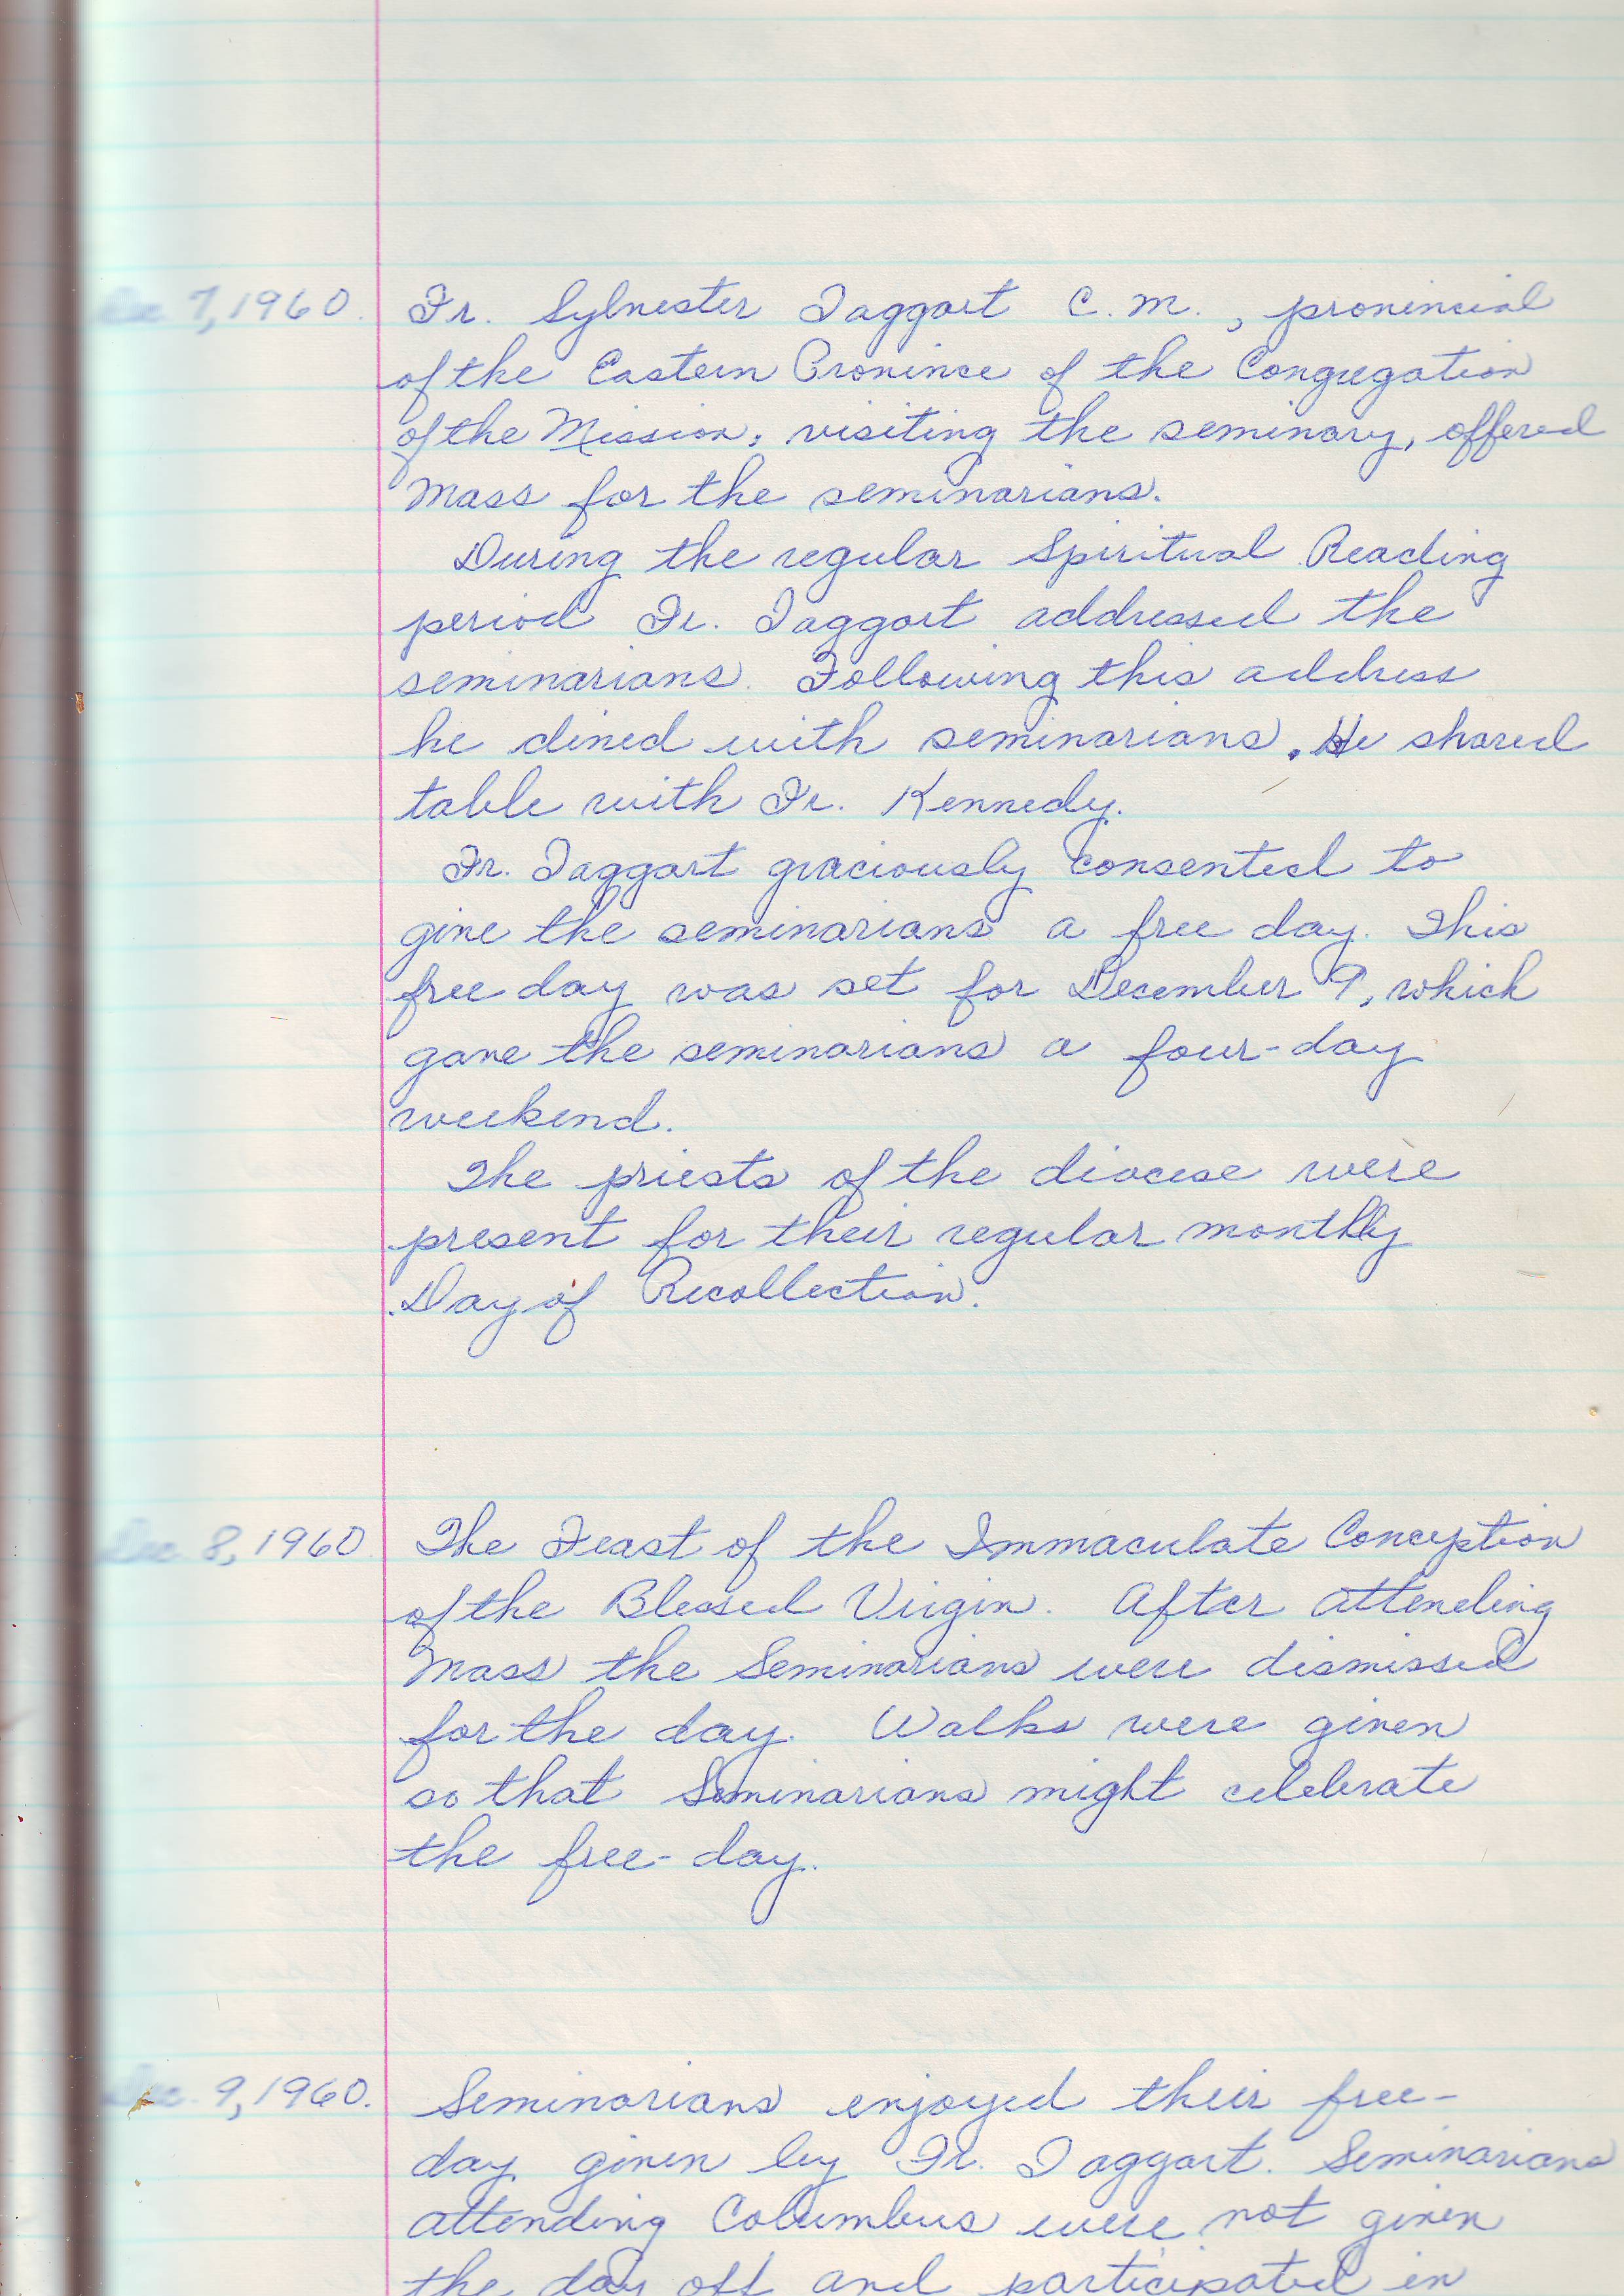 Dec 7, 1960. Fr. Sylvester Taggart C.M., provincial
of the Eastern Province of the Congregation
of the Mission, visiting the seminary, offered
Mass for the seminarians.
During the regular Spiritual Reading
period Fr. Taggart addressed the
seminarians. Following this address
he dined with seminarians. He shared
table with Fr. Kennedy.
Fr. Taggart graciously consented to
give the seminarians a free day. This
free day was set for December 9, which
gave the seminarians a four-day
weekend.
The priests of the diocese were
present for their regular monthly
Day of Recollection.
Dec. 8, 1960 The Feast of the Immaculate Conception
of the Blessed Virgin. After attending
Mass the Seminarians were dismissed
for the day. Walks were given
so that Seminarians might celebrate
the free-day.
Dec. 9, 1960. Seminarians enjoyed their free-
day given by Fr. Taggart. Seminarians
attending Columbus were not given
the day off and participated in